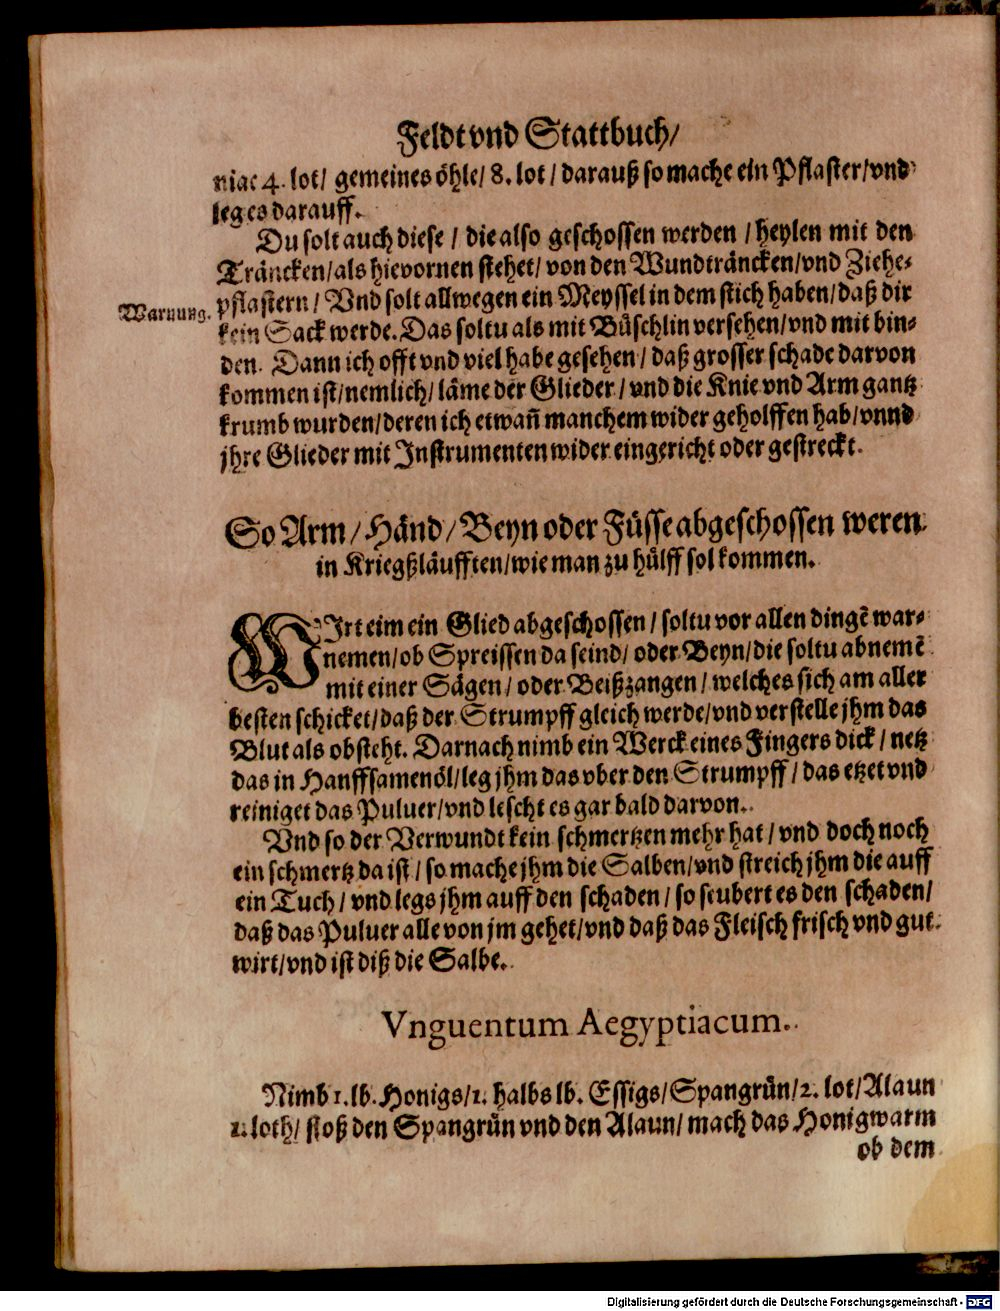 Feldt vnd Stattbuch/
niac 4. lot/ gemeines öhle/ 8. lot/ darauß so mache ein Pflaster/ vnd
leg es darauff.
Du solt auch diese / die also geschossen werden / heylen mit den
Träncken/ als hievornen stehet/ von den Wundträncken/ vnd Ziehe-
pflastern/ Vnd solt allwegen ein Meyssel in dem stich haben/ daß dir
Warnung.
kein Sack werde. Das soltu als mit Büschlin versehen/ vnd mit bin-
den. Dann ich offt vnd viel habe gesehen/ daß grosser schade darvon
kommen ist/ nemlich/ läme der Glieder/ vnd die Knie vnd Arm gantz
krumb wurden/ deren ich etwañ manchem wider geholffen hab/ vnnd
jhre Glieder mit Instrumenten wider eingericht oder gestreckt.
So Arm/ Händ/ Beyn oder Füsse abgeschossen weren
in Kriegßläufften/ wie man zu hülff sol kommen.
WIrt eim ein Glied abgeschossen/ soltu vor allen dingẽ war-
nemen/ ob Spreissen da seind/ oder Beyn/ die soltu abnemẽ
mit einer Sägen/ oder Beißzangen/ welches sich am aller
besten schicket/ daß der Strumpff gleich werde/ vnd verstelle jhm das
Blut als obsteht. Darnach nimb ein Werck eines Fingers dick/ netz
das in Hanffsamenöl/ leg jhm das vber den Strumpff/ das etzet vnd
reiniget das Puluer/ vnd lescht es gar bald darvon.
Vnd so der Verwundt kein schmertzen mehr hat/ vnd doch noch
ein schmertz da ist/ so mache jhm die Salben/ vnd streich jhm die auff
ein Tuch/ vnd legs jhm auff den schaden/ so seubert es den schaden/
daß das Puluer alle von jm gehet/ vnd daß das Fleisch frisch vnd gut
wirt/ vnd ist diß die Salbe.
Vnguentum Aegyptiacum.
Nimb 1. lb. Honigs/ 1. halbs lb. Essigs/ Spangrün/ 2. lot/ Alaun
1. loth/ stoß den Spangrün vnd den Alaun/ mach das Honig warm
ob dem
Digitalisierung gefördert durch die Deutsche Forschungsgemeinschaft - DFG